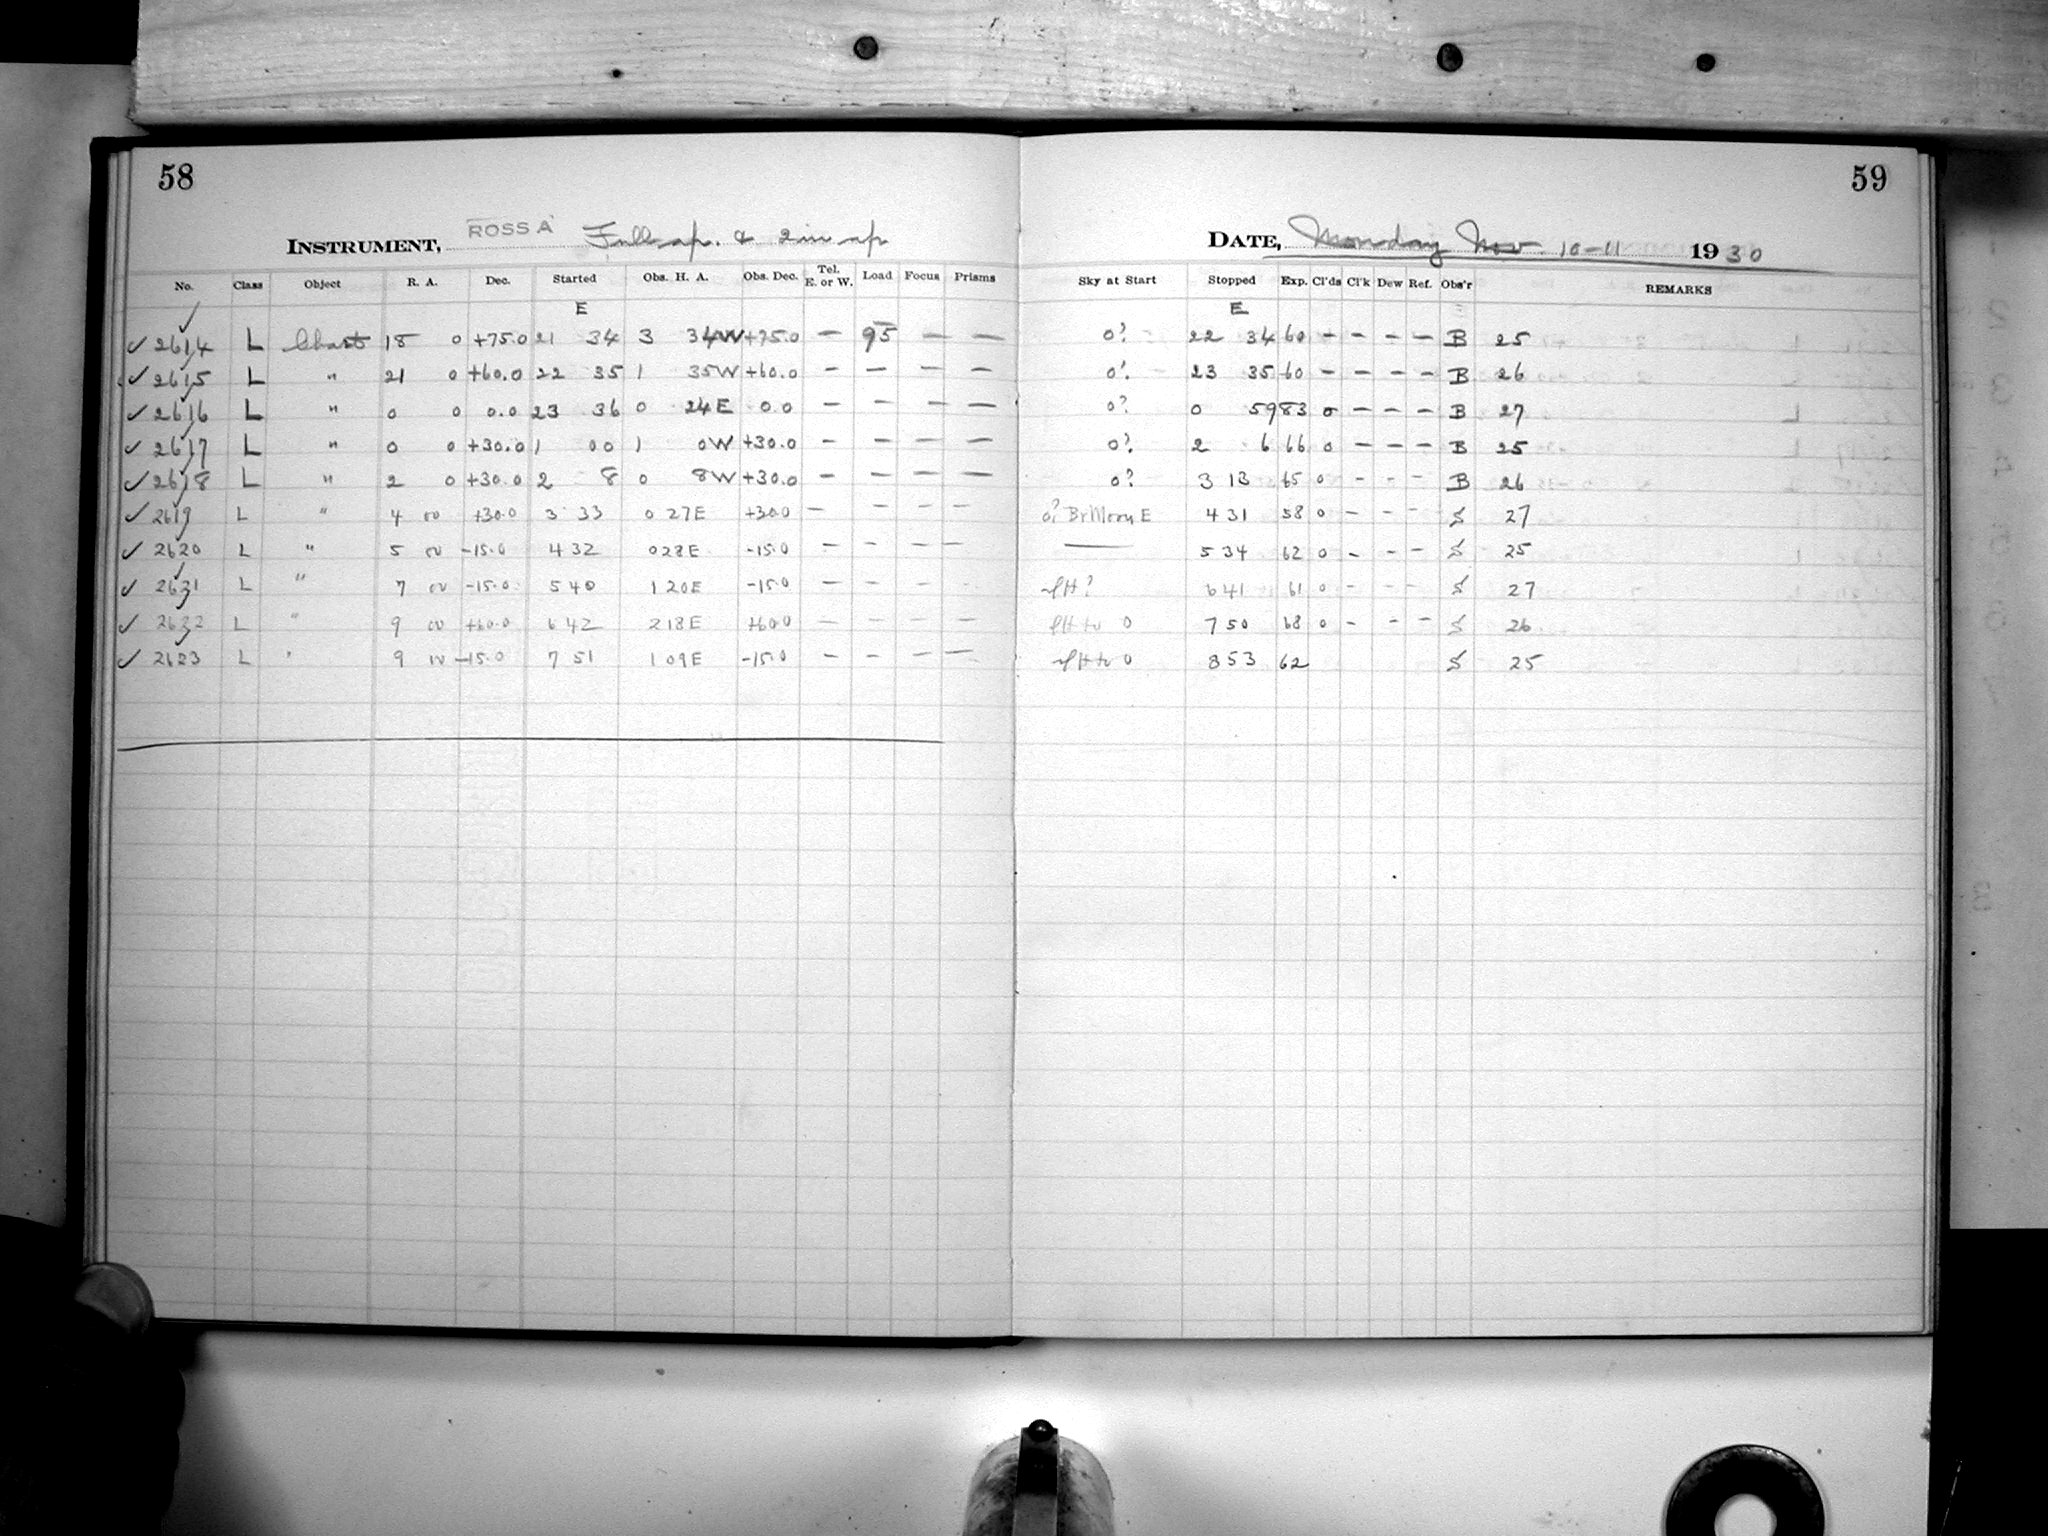 58
59
INSTRUMENT, ROSS A Full ap. & 2 in ap
DATE, Monday Nov. 10-11 1930
No. Class Object R. A. Dec. Started Obs. H. A. Obs. Dec. Tel. E. or W. Load Focus Prisms Sky at Start Stopped Exp. Cl'ds Cl'k Dew Ref. Obs'r REMARKS
E E
✓ 2614 L Chart 18 0 +75.0 21 34 3 34W +75.0 – 95 – – 0? 22 34 60 – – – – B 25
✓ 2615 L " 21 0 +60.0 22 35 1 35W +60.0 – – – – 0? 23 35 60 – – – – B 26
✓ 2616 L " 0 0 0.0 23 36 0 24E 0.0 – – – – 0? 0 59 83 0 – – – B 27
✓ 2617 L " 0 0 +30.0 1 00 1 0W +30.0 – – – – 0? 2 6 66 0 – – – B 25
✓ 2618 L " 2 0 +30.0 2 8 0 8W +30.0 – – – – 0? 3 13 65 0 – – – B 26
✓ 2619 L " 4 00 +30.0 3 33 0 27E +30.0 – – – – 0? Br Moon E 4 31 58 0 – – – S 27
✓ 2620 L " 5 00 -15.0 4 32 0 28E -15.0 – – – – — 5 34 62 0 – – – S 25
✓ L " 7 00 -15.0 5 40 1 20E -15.0 – – – 6 41 61 0 – – – S 27
✓ L " 9 00 +60.0 6 42 2 18E +60.0 – – – – to 0 7 50 68 0 – – – S 26
✓ 2623 L " 9 00 -15.0 7 51 1 09E -15.0 – – – – to 0 8 53 62 S 25